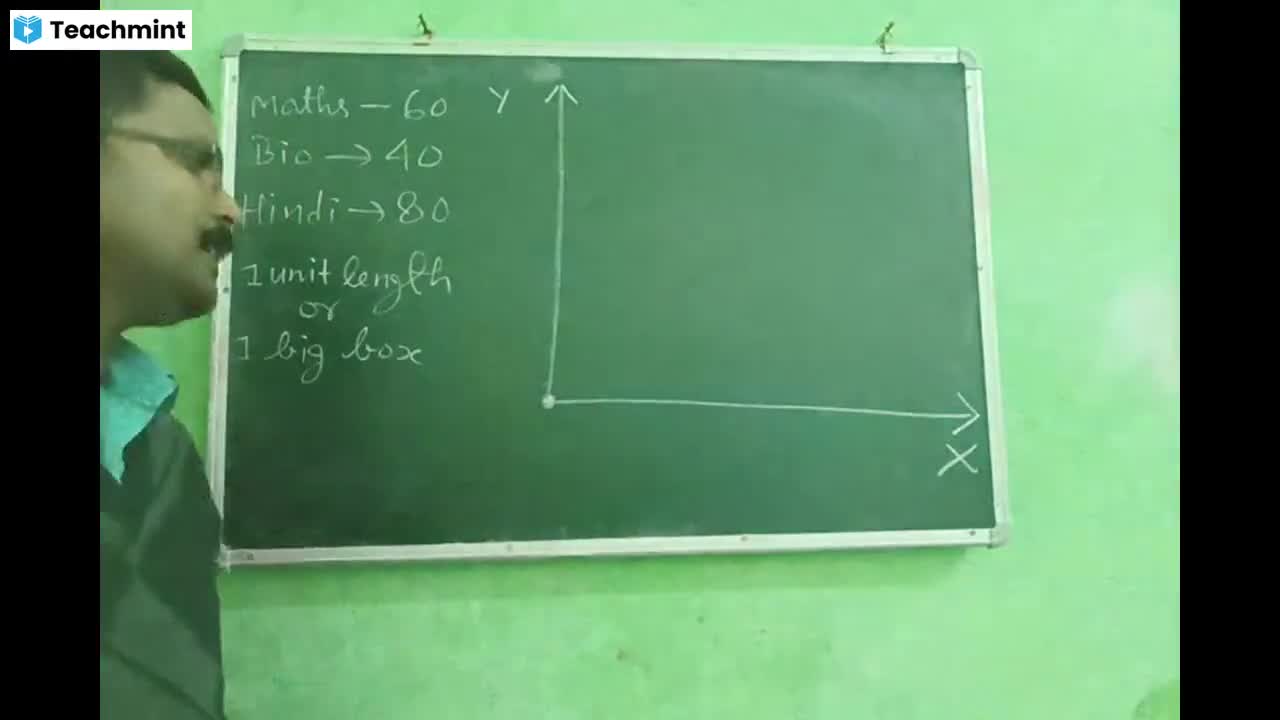 Teachmint
Maths – 60
Bio → 40
Hindi → 80
1 unit length
or
1 big box
Y
X